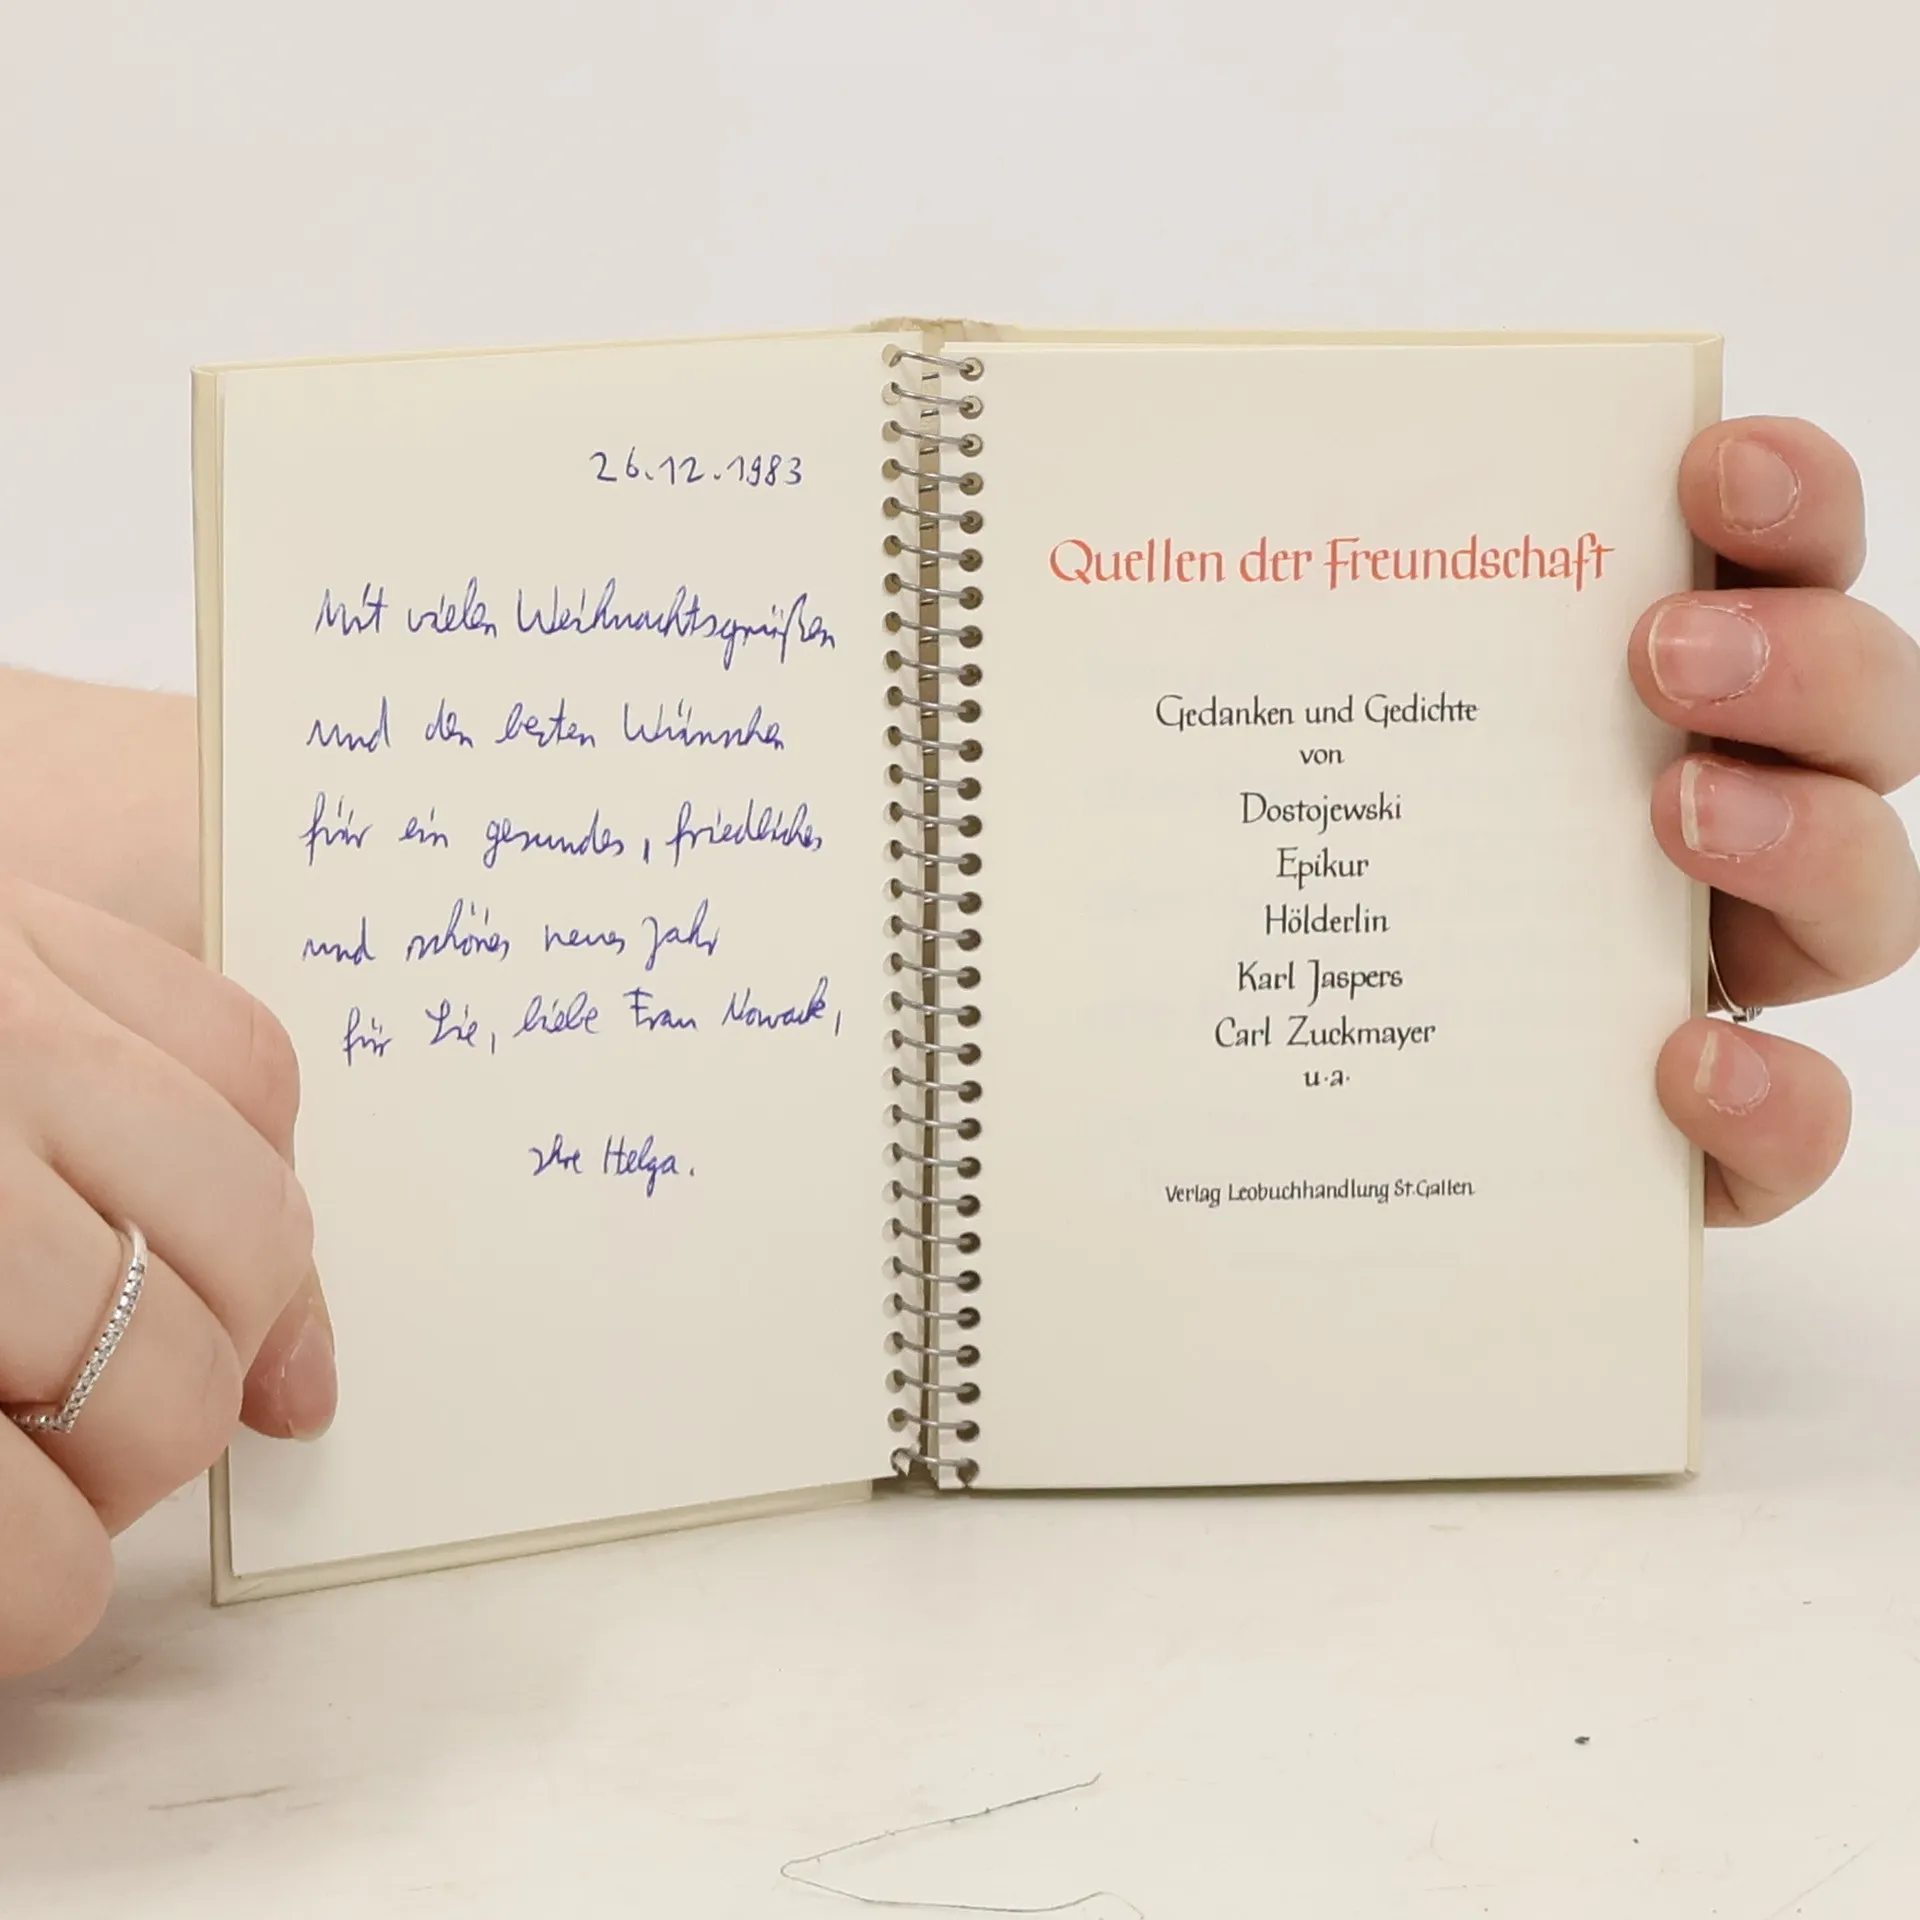 26.12.1983
Mit vielen Weihnachtsgrüßen
und den besten Wünschen
für ein gesundes, friedliches
und schönes neues Jahr
für Sie, liebe Frau Nowack,
Ihre Helga.
Quellen der Freundschaft
Gedanken und Gedichte
von
Dostojewski
Epikur
Hölderlin
Karl Jaspers
Carl Zuckmayer
u.a.
Verlag Leobuchhandlung St.Gallen